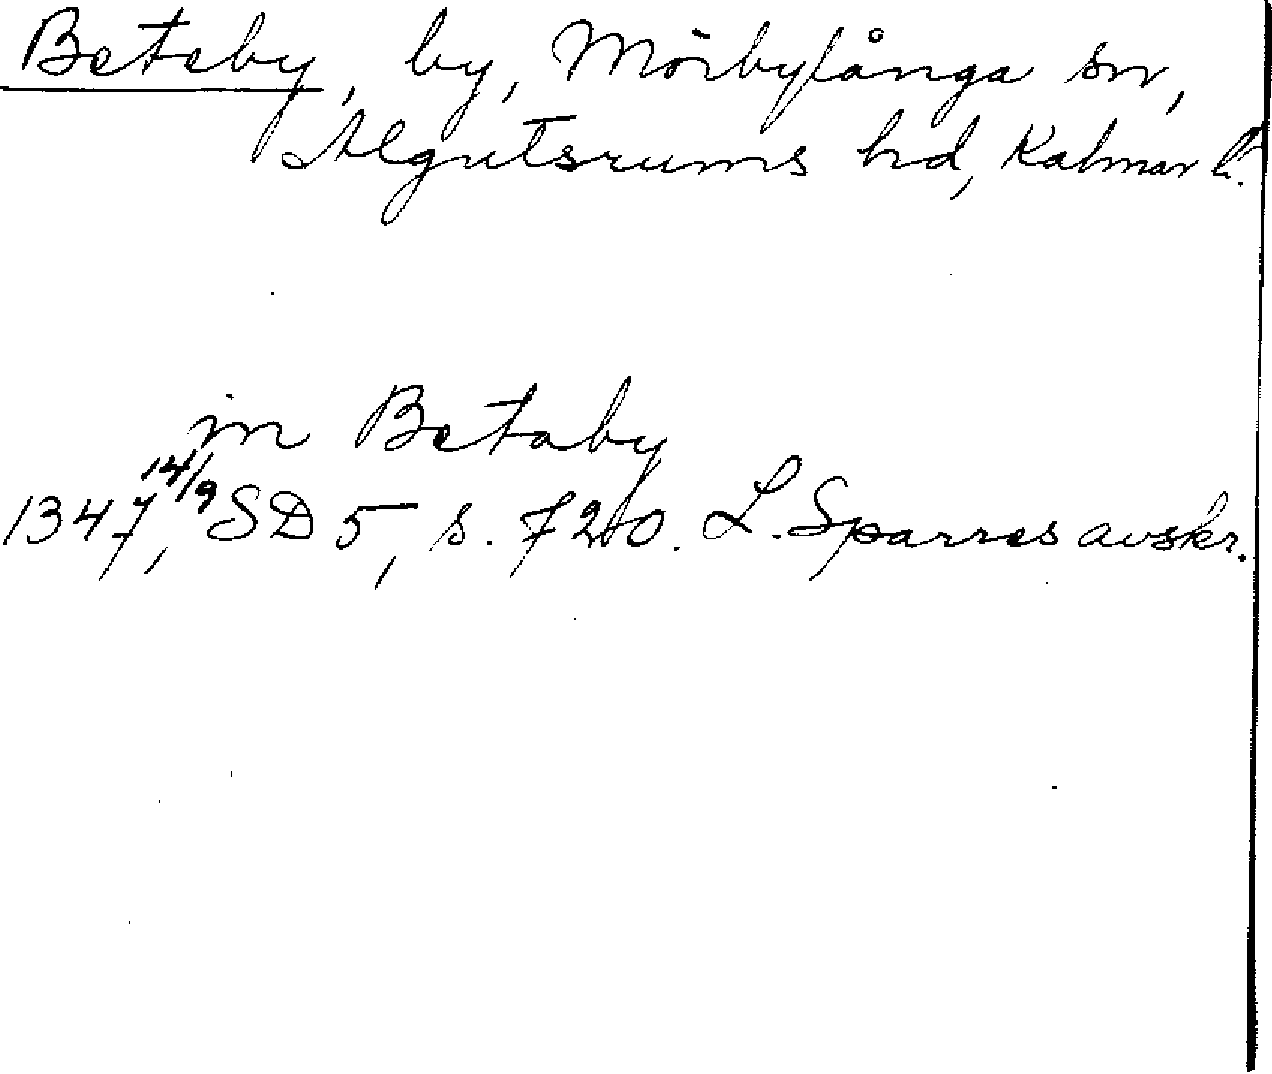 Beteby, by, Mörbylånga sn,
Algutsrums hd, Kalmar l.
in Betaby
1347, 14/9 SD 5, s. 720. L. Sparres avskr.